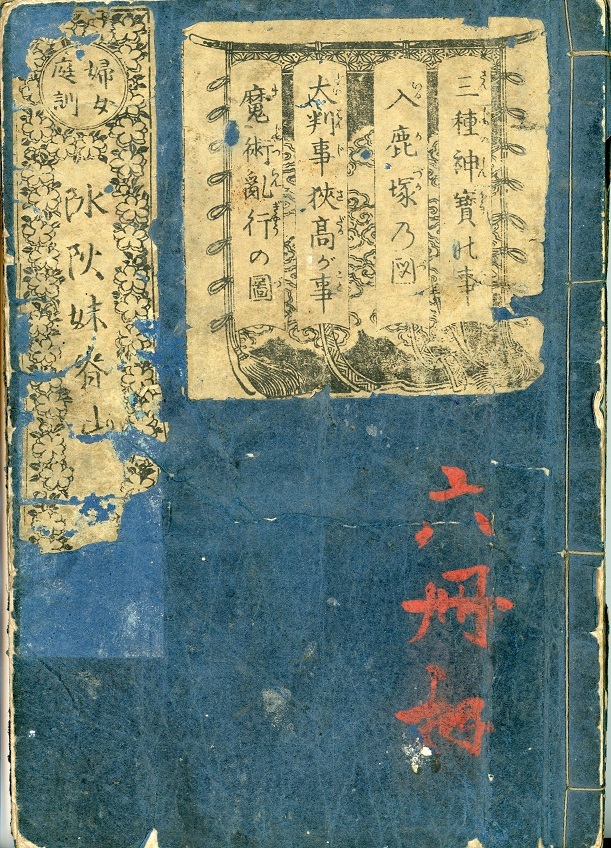 三種神寶の事
入鹿塚乃図
大判事狭高が事
魔術亂行の圖
婦女
庭訓
妹脊山
六冊